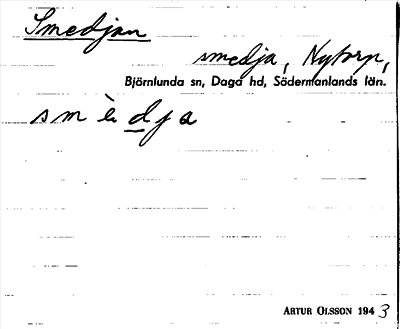 Smedjan
smedja, Nytorp,
Björnlunda sn, Daga hd, Södermanlands län.
smèdja
ARTUR OLSSON 1943